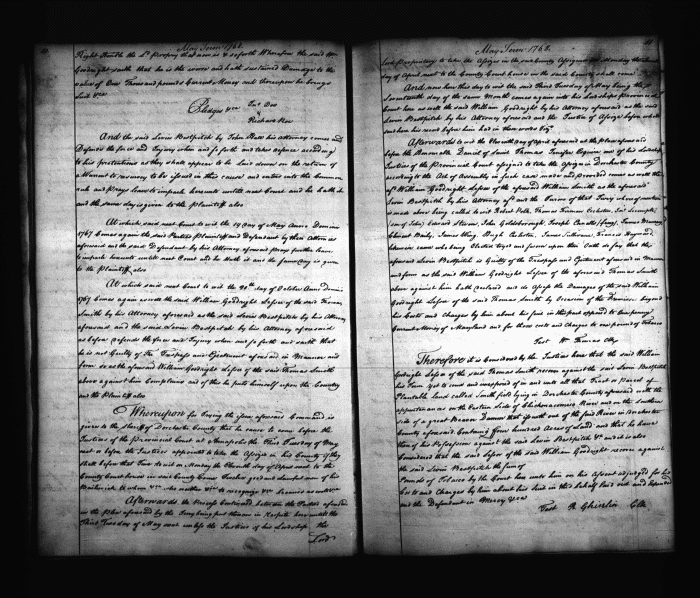 May Term 1768
Right Thomas the Ld. Propr. that now is & so forth Wherefore the said Wm
Goodnight saith that he is the worse and hath sustained Damage to the
value of One Thousand pounds Current Money and thereupon he brings
Suit &ca
Pledges &ca Jno Doe
& Richard Roe
And the said Levin Bestpitch by John Hall his attorney comes and
Defends the force and Injury when and so forth and takes defence according
to his as they shall appear to be laid down on the return of
a Warrant to be issued in this cause and enters into the Common
rule and prays leave to imparle hereunto until next Court and he hath it
and the same day is given to the plaintiff also
At which said next Court to wit the 19 day of May Anno Domini
1767 Comes again the said Parties Plaintiff and Defendant by their Attornies
aforesaid and the said Defendant by his Attorney aforesaid prays further leave
to imparle hereunto until next Court and he hath it and the same day is given
to the Plaintiff also
At which said next Court to wit the 20th day of October Anno Domini
1767 Comes again as well the said William Goodnight Lessee of the said Thomas
Smith by his Attorney aforesaid as the said Levin Bestpitch by his Attorney
aforesaid and the said Levin Bestpitch by his Attorney aforesaid
as before defends the force and Injury when and so forth and saith that
he is not Guilty of the Trespass and Ejectment aforesaid in Manner and
form as the aforesaid William Goodnight Lessee of the said Thomas Smith
above against him Complains and of this he puts himself upon the Country
and the Plaintiff also
Whereupon for Trying the Issue aforesaid Command is
given to the Sheriff of Dorchester County that he cause to come before the
Justices of the Provincial Court at Annapolis the Third Tuesday of May
next or before the Justices appointed to take the Assizes in his County if they
shall before that Time to wit on Monday the Eleventh day of April next to the
County Court house in said County Come Twelve good and lawful men of his
Bailiwick to whom &ca who neither &ca to recognize &ca because as well &ca
Afterwards the Process Continued between the Parties aforesaid
in the Plea aforesaid by the Jury being put thereon in Respite here until the
Third Tuesday of May next unless the Justices of his Lordship the
Lord
May Term 1768.
Lord Proprietary to take the Assizes in the said County Assigned on Monday the Eleventh
day of April next to the County Court house in the said County shall come
And now here this day to wit the said Third Tuesday of May being the
Seventeenth day of the same Month comes again into his Lordships Provincial
Court here as well the said William Goodnight by his Attorney aforesaid as the said
Levin Bestpitch by his Attorney aforesaid and the Justices of Assize before whom
sent here their record before him had in these words
Afterwards to wit the Eleventh day of April aforesaid at the place aforesaid
before the Honorable Daniel of Saint Thomas Jenifer Esquire one of his Lordships
Justices of the Provincial Court assigned to take the Assizes in Dorchester County
according to the Act of Assembly in such case made and provided comes as well the
aforesaid William Goodnight Lessee of the aforesaid William Smith as the aforesaid
Levin Bestpitch by his Attorney aforesaid and the Jurors of that Jury whereof mention
is made above being called to wit Robert Thomas Firman Eccleston
son of John Edward Stevens John Goldsborough Joseph James Meloney
Hugh Eccleston James Sulivane Francis Hayward
likewise came who being Elected tryed and sworn upon their Oath do say that the
aforesaid Levin Bestpitch is Guilty of the Trespass and Ejectment aforesaid in Manner
and form as the said William Goodnight Lessee of the aforesaid Thomas Smith
above against him hath declared and do Assess the Damages of the said William
Goodnight Lessee of the said Thomas Smith by Occasion of the Premises beyond
his Costs and Charges by him about his suit in this part expended to
Current Money of Maryland and for those costs and Charges to pounds of Tobacco
Test Wm Thomas Clk
Therefore it is Considered by the Justices here that the said William
Goodnight Lessee of the said Thomas Smith recover against the said Levin Bestpitch
his Term yet to come and unexpired of in and unto all that Tract or Parcel of
Plantable land called Smith field lying in Dorchester County aforesaid with the
appurtenances on the Eastern side of Chickanocomico River and on the Southern
side of a great Beaver Dam that issueth out of the said River in Dorchester
County aforesaid Containing four hundred Acres of Land and that he have
thereof his Possession against the said Levin Bestpitch &ca and it is also
Considered that the said William Goodnight recover against
the said Levin Bestpitch the sum of
Pounds of Tobacco by the Court here unto him on his Assent adjudged for his
Costs and Charges by him about his Suit in this behalf laid out and Expended
and the Defendant in Mercy &ca
Test R Ghiselin Clk